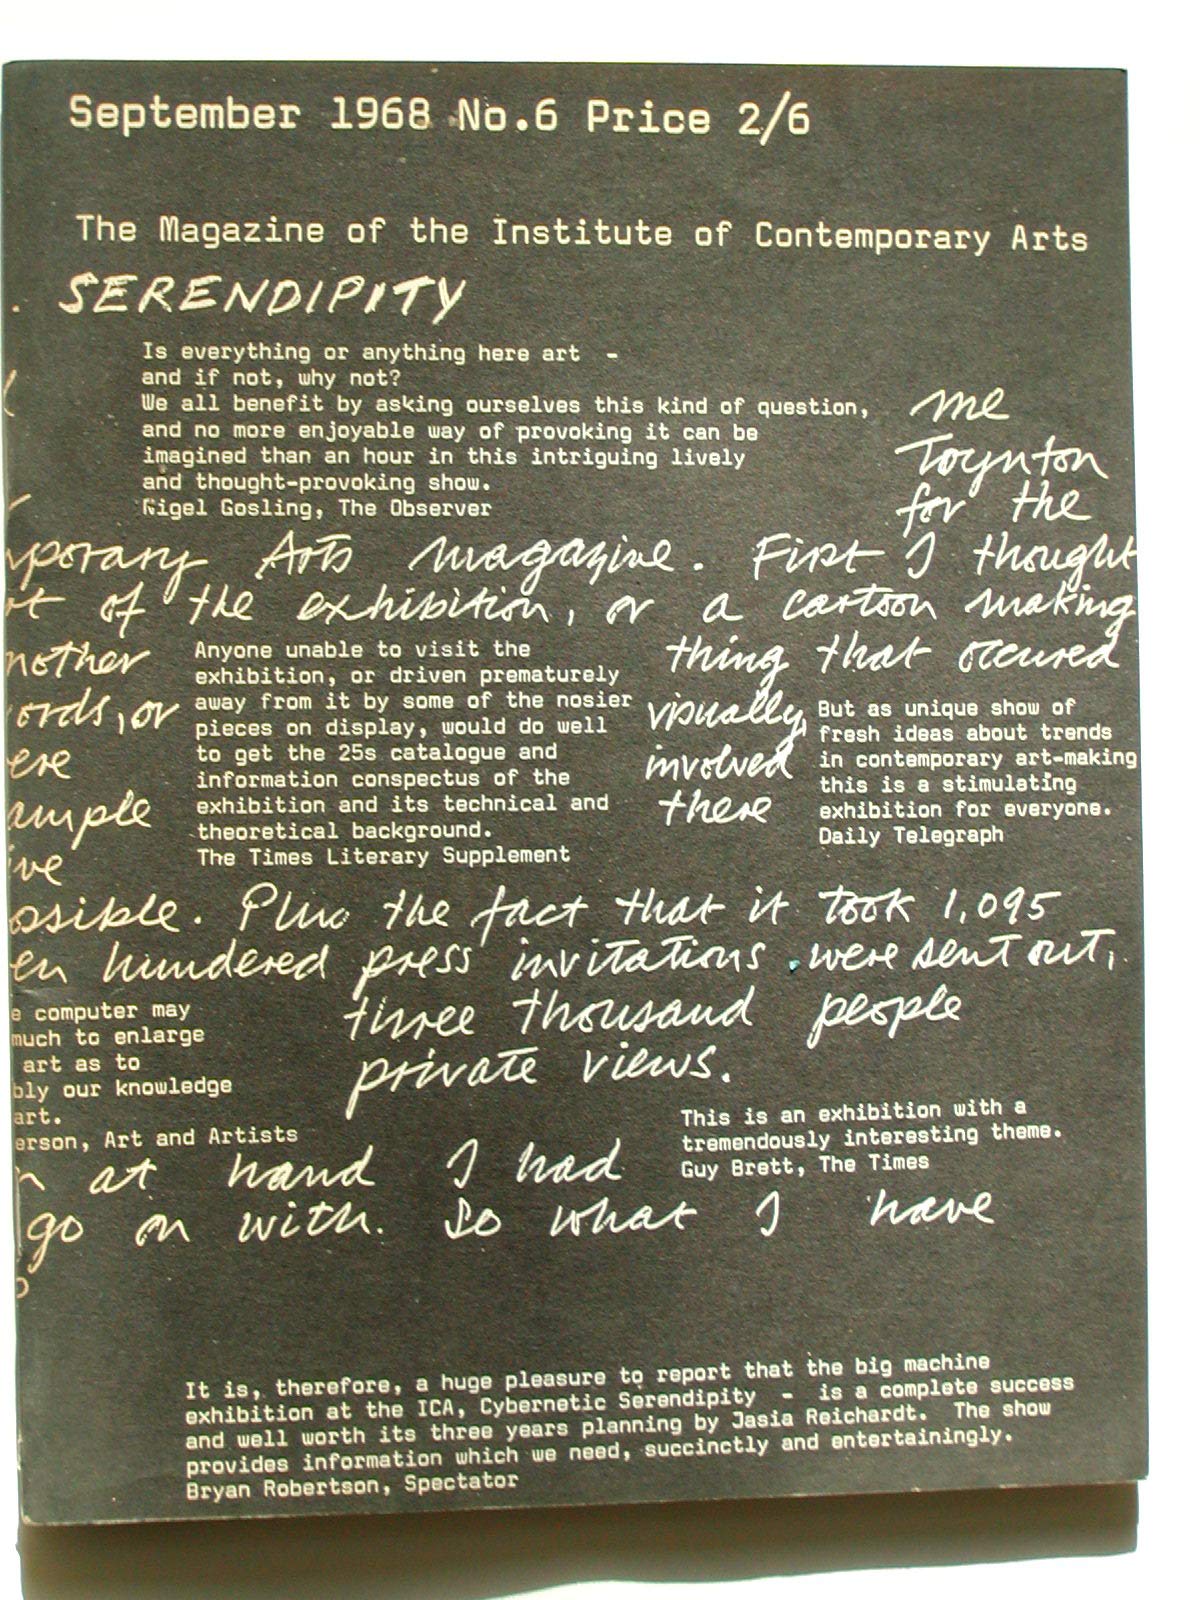 September 1968 No.6 Price 2/6
The Magazine of the Institute of Contemporary Arts
. SERENDIPITY
Is everything or anything here art -
and if not, why not?
We all benefit by asking ourselves this kind of question,
and no more enjoyable way of provoking it can be
imagined than an hour in this intriguing lively
and thought-provoking show.
Nigel Gosling, The Observer
me
Toynton
for the
mporary Arts magazine. First I thought
rt of the exhibition, or a cartoon making
nother
ords, or
ere
ample
ive
Anyone unable to visit the
exhibition, or driven prematurely
away from it by some of the nosier
pieces on display, would do well
to get the 25s catalogue and
information conspectus of the
exhibition and its technical and
theoretical background.
The Times Literary Supplement
thing that occured
visually,
involved
there
But as unique show of
fresh ideas about trends
in contemporary art-making
this is a stimulating
exhibition for everyone.
Daily Telegraph
ossible. Plus the fact that it took 1,095
en hundered press invitations were sent out,
three thousand people
private views.
e computer may
much to enlarge
art as to
bly our knowledge
art.
erson, Art and Artists
This is an exhibition with a
tremendously interesting theme.
Guy Brett, The Times
at hand I had
go on with. So what I have
It is, therefore, a huge pleasure to report that the big machine
exhibition at the ICA, Cybernetic Serendipity - is a complete success
and well worth its three years planning by Jasia Reichardt. The show
provides information which we need, succinctly and entertainingly.
Bryan Robertson, Spectator